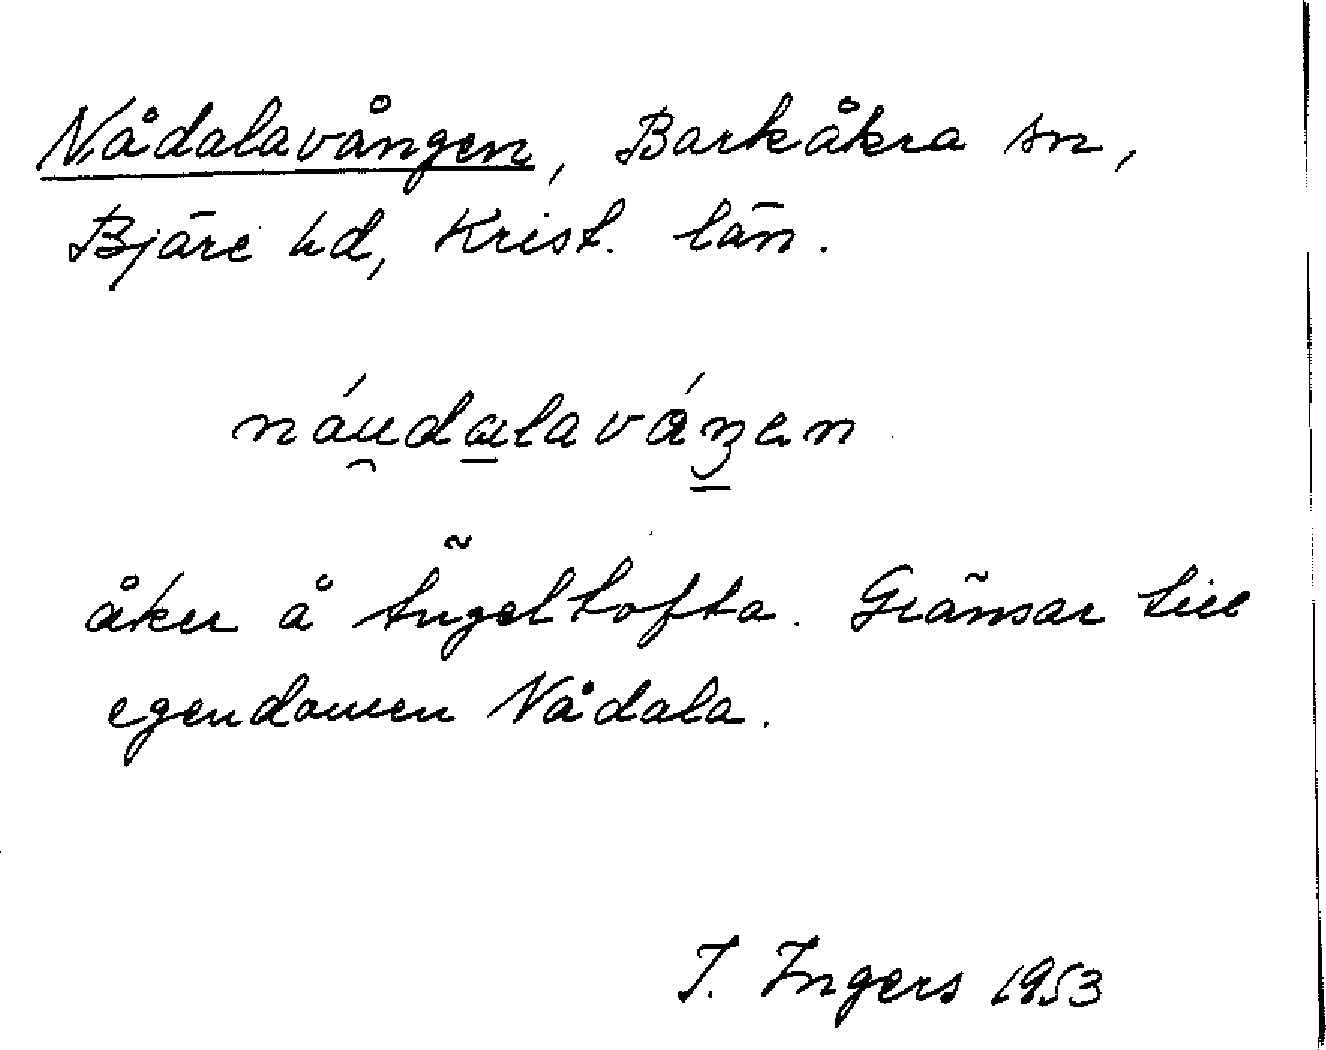 Nådalavången, Barkåkra sn,
Bjäre hd, Krist. län.
náu̯dalaváŋen
åker å Ängeltofta. Gränsar till
egendomen Nådala.
I. Ingers 1953